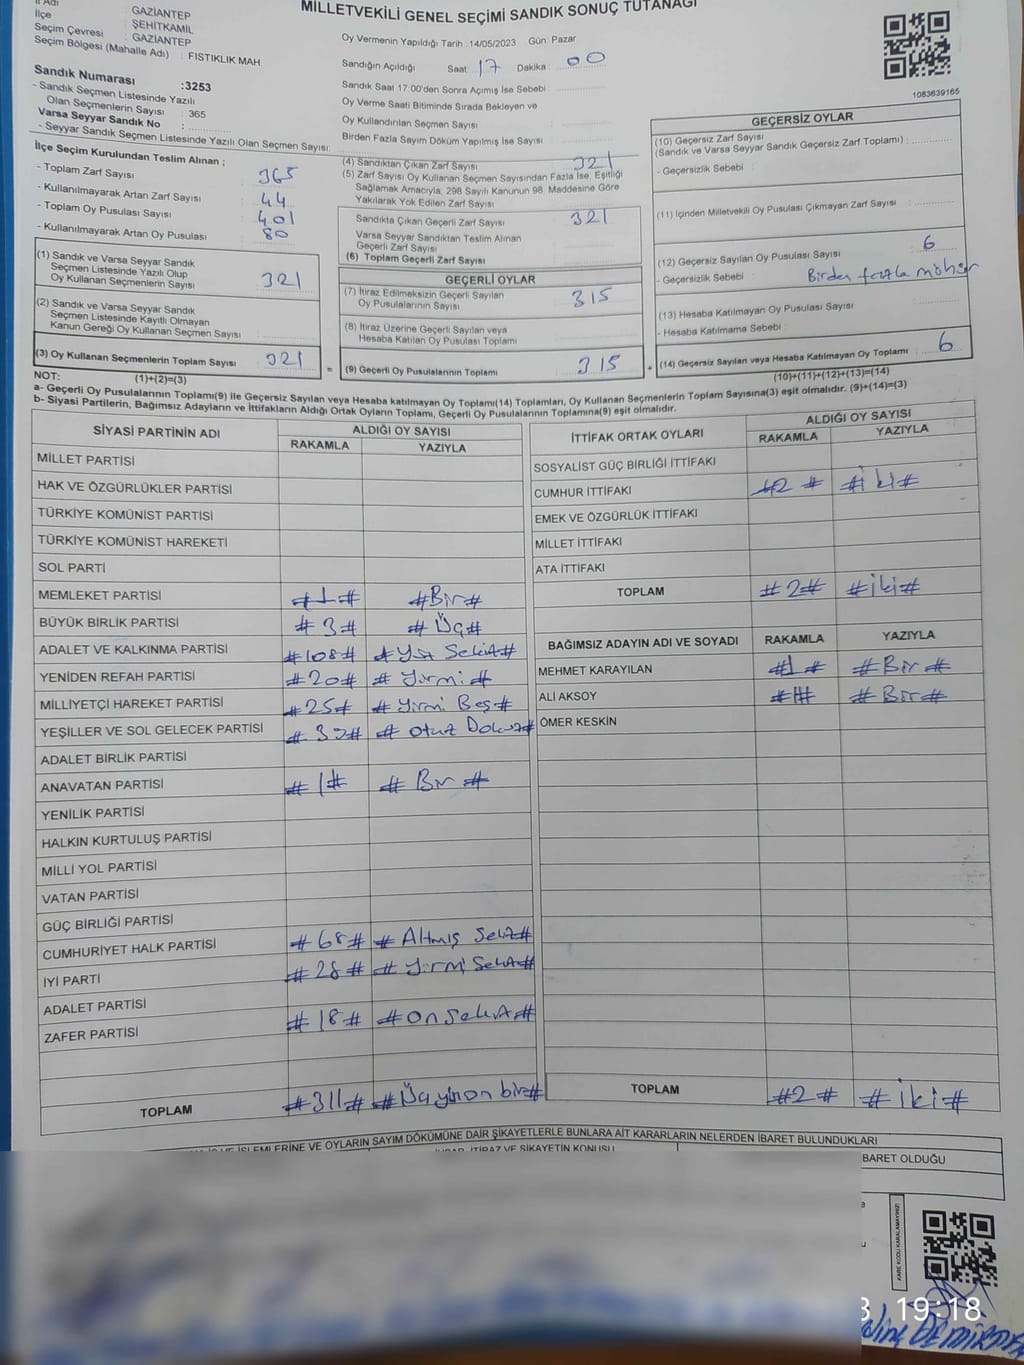 MİLLETVEKİLİ GENEL SEÇİMİ SANDIK SONUÇ TUTANAĞI
İl Adı GAZİANTEP
İlçe ŞEHİTKAMİL
Seçim Çevresi : GAZİANTEP
Seçim Bölgesi (Mahalle Adı) : FISTIKLIK MAH.
Sandık Numarası :3253
- Sandık Seçmen Listesinde Yazılı
Olan Seçmenlerin Sayısı : 365
Varsa Seyyar Sandık No :
- Seyyar Sandık Seçmen Listesinde Yazılı Olan Seçmen Sayısı:
Oy Vermenin Yapıldığı Tarih :14/05/2023 Gün: Pazar
Sandığın Açıldığı Saat 17 Dakika 00
Sandık Saat 17.00'den Sonra Açımış İse Sebebi :
Oy Verme Saati Bitiminde Sırada Bekleyen ve
Oy Kullandırılan Seçmen Sayısı
Birden Fazla Sayım Döküm Yapılmış İse Sayısı :
1083639165
İlçe Seçim Kurulundan Teslim Alınan ;
- Toplam Zarf Sayısı 365
- Kullanılmayarak Artan Zarf Sayısı 44
- Toplam Oy Pusulası Sayısı 401
- Kullanılmayarak Artan Oy Pusulası 80
(1) Sandık ve Varsa Seyyar Sandık
Seçmen Listesinde Yazılı Olup
Oy Kullanan Seçmenlerin Sayısı : 321
(2) Sandık ve Varsa Seyyar Sandık
Seçmen Listesinde Kayıtlı Olmayan
Kanun Gereği Oy Kullanan Seçmen Sayısı :
(3) Oy Kullanan Seçmenlerin Toplam Sayısı : 321
(1)+(2)=(3)
(4) Sandıktan Çıkan Zarf Sayısı 321
(5) Zarf Sayısı Oy Kullanan Seçmen Sayısından Fazla İse, Eşitliği
Sağlamak Amacıyla, 298 Sayılı Kanunun 98. Maddesine Göre
Yakılarak Yok Edilen Zarf Sayısı
Sandıkta Çıkan Geçerli Zarf Sayısı 321
Varsa Seyyar Sandıktan Teslim Alınan
Geçerli Zarf Sayısı
(6) Toplam Geçerli Zarf Sayısı
GEÇERLİ OYLAR
(7) İtiraz Edilmeksizin Geçerli Sayılan
Oy Pusulalarının Sayısı 315
(8) İtiraz Üzerine Geçerli Sayılan veya
Hesaba Katılan Oy Pusulası Toplamı
= (9) Geçerli Oy Pusulalarının Toplamı 315
GEÇERSİZ OYLAR
(10) Geçersiz Zarf Sayısı
(Sandık ve Varsa Seyyar Sandık Geçersiz Zarf Toplamı) :
- Geçersizlik Sebebi :
(11) İçinden Milletvekili Oy Pusulası Çıkmayan Zarf Sayısı :
(12) Geçersiz Sayılan Oy Pusulası Sayısı : 6
- Geçersizlik Sebebi : Birden fazla mühür
(13) Hesaba Katılmayan Oy Pusulası Sayısı
- Hesaba Katılmama Sebebi :
+ (14) Geçersiz Sayılan veya Hesaba Katılmayan Oy Toplamı 6
(10)+(11)+(12)+(13)=(14)
NOT:
a- Geçerli Oy Pusulalarının Toplamı(9) ile Geçersiz Sayılan veya Hesaba katılmayan Oy Toplamı(14) Toplamları, Oy Kullanan Seçmenlerin Toplam Sayısına(3) eşit olmalıdır. (9)+(14)=(3)
b- Siyasi Partilerin, Bağımsız Adayların ve İttifakların Aldığı Ortak Oyların Toplamı, Geçerli Oy Pusulalarının Toplamına(9) eşit olmalıdır.
SİYASİ PARTİNİN ADI ALDIĞI OY SAYISI
RAKAMLA YAZIYLA
MİLLET PARTİSİ
HAK VE ÖZGÜRLÜKLER PARTİSİ
TÜRKİYE KOMÜNİST PARTİSİ
TÜRKİYE KOMÜNİST HAREKETİ
SOL PARTİ
MEMLEKET PARTİSİ #1# #Bir#
BÜYÜK BİRLİK PARTİSİ #3# #Üç#
ADALET VE KALKINMA PARTİSİ #108# #Yüz Sekiz#
YENİDEN REFAH PARTİSİ #20# #Yirmi#
MİLLİYETÇİ HAREKET PARTİSİ #25# #Yirmi Beş#
YEŞİLLER VE SOL GELECEK PARTİSİ #39# #Otuz Dokuz#
ADALET BİRLİK PARTİSİ
ANAVATAN PARTİSİ #1# #Bir#
YENİLİK PARTİSİ
HALKIN KURTULUŞ PARTİSİ
MİLLİ YOL PARTİSİ
VATAN PARTİSİ
GÜÇ BİRLİĞİ PARTİSİ
CUMHURİYET HALK PARTİSİ #68# #Altmış Sekiz#
İYİ PARTİ #28# #Yirmi Sekiz#
ADALET PARTİSİ
ZAFER PARTİSİ #18# #On Sekiz#
TOPLAM #311# #Üçyüzonbir#
İTTİFAK ORTAK OYLARI ALDIĞI OY SAYISI
RAKAMLA YAZIYLA
SOSYALİST GÜÇ BİRLİĞİ İTTİFAKI
CUMHUR İTTİFAKI #2# #iki#
EMEK VE ÖZGÜRLÜK İTTİFAKI
MİLLET İTTİFAKI
ATA İTTİFAKI
TOPLAM #2# #iki#
BAĞIMSIZ ADAYIN ADI VE SOYADI RAKAMLA YAZIYLA
MEHMET KARAYILAN #1# #Bir#
ALİ AKSOY #1# #Bir#
ÖMER KESKİN
TOPLAM #2# #iki#
İŞLEMLERİNE VE OYLARIN SAYIM DÖKÜMÜNE DAİR ŞİKAYETLERLE BUNLARA AİT KARARLARIN NELERDEN İBARET BULUNDUKLARI
İTİRAZ VE ŞİKAYETİN KONUSU
BARET OLDUĞU
KARE KODU KARALAMAYINIZ!
19:18
DEMİR